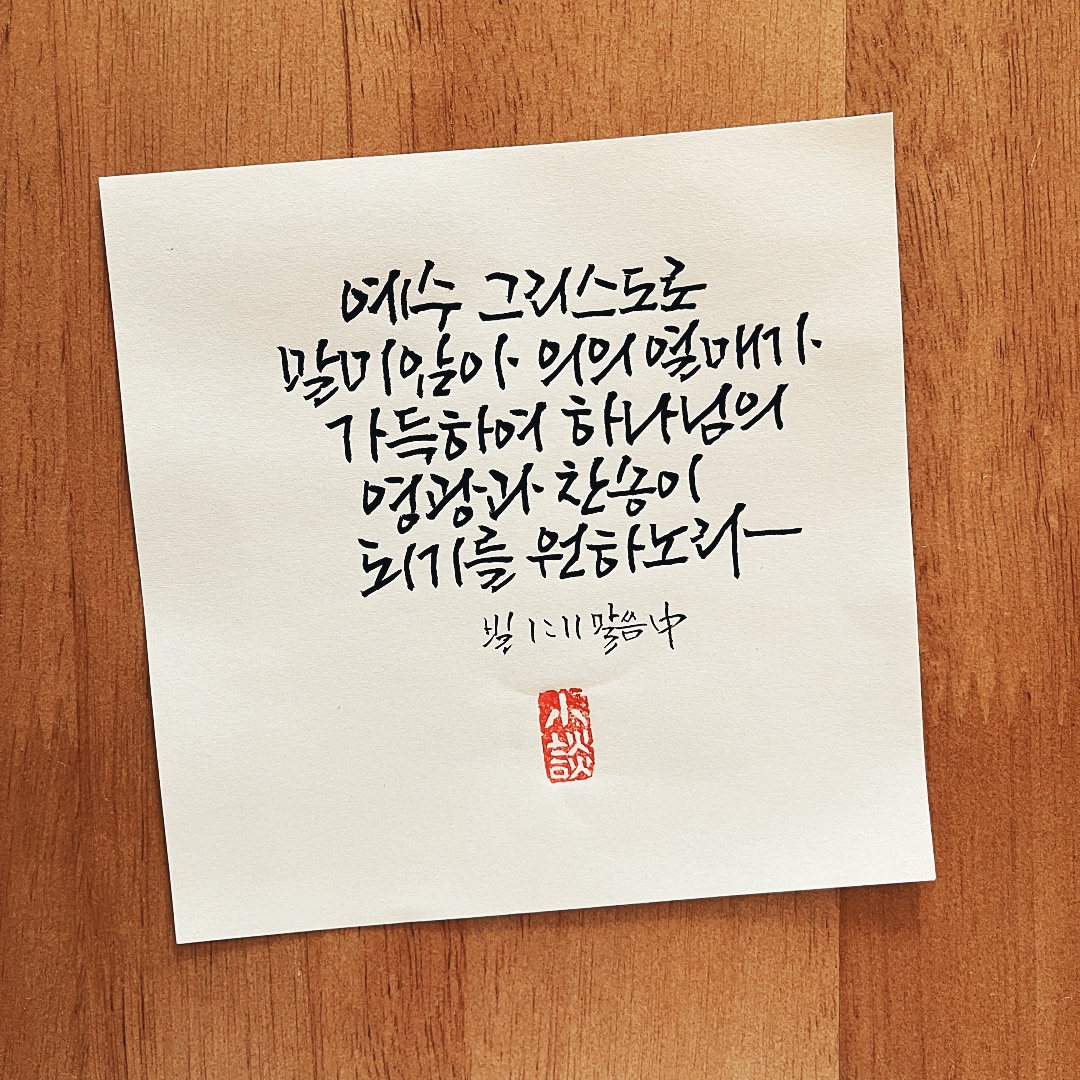 예수 그리스도로
말미암아 의의 열매가
가득하여 하나님의
영광과 찬송이
되기를 원하노라
빌 1:11 말씀中
小談